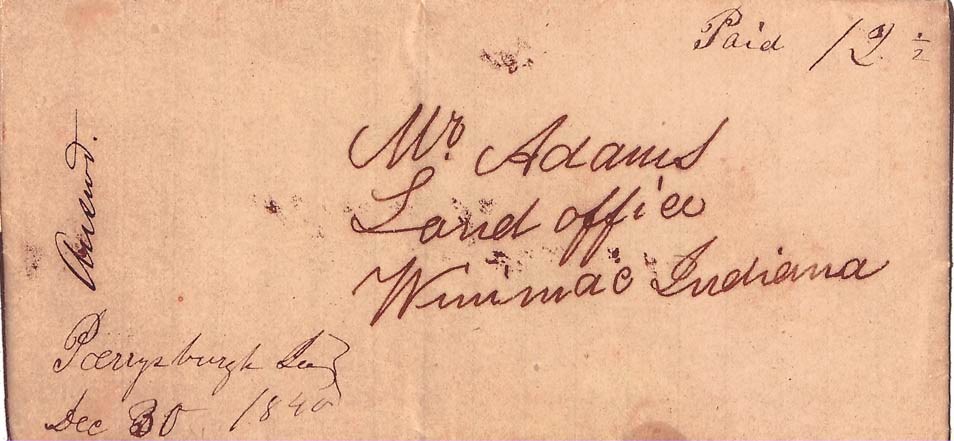 Paid 12 1/2
Mr. Adams
Land office
Winimac Indiana
Answd.
Perrysburgh Ind
Dec 30 1840